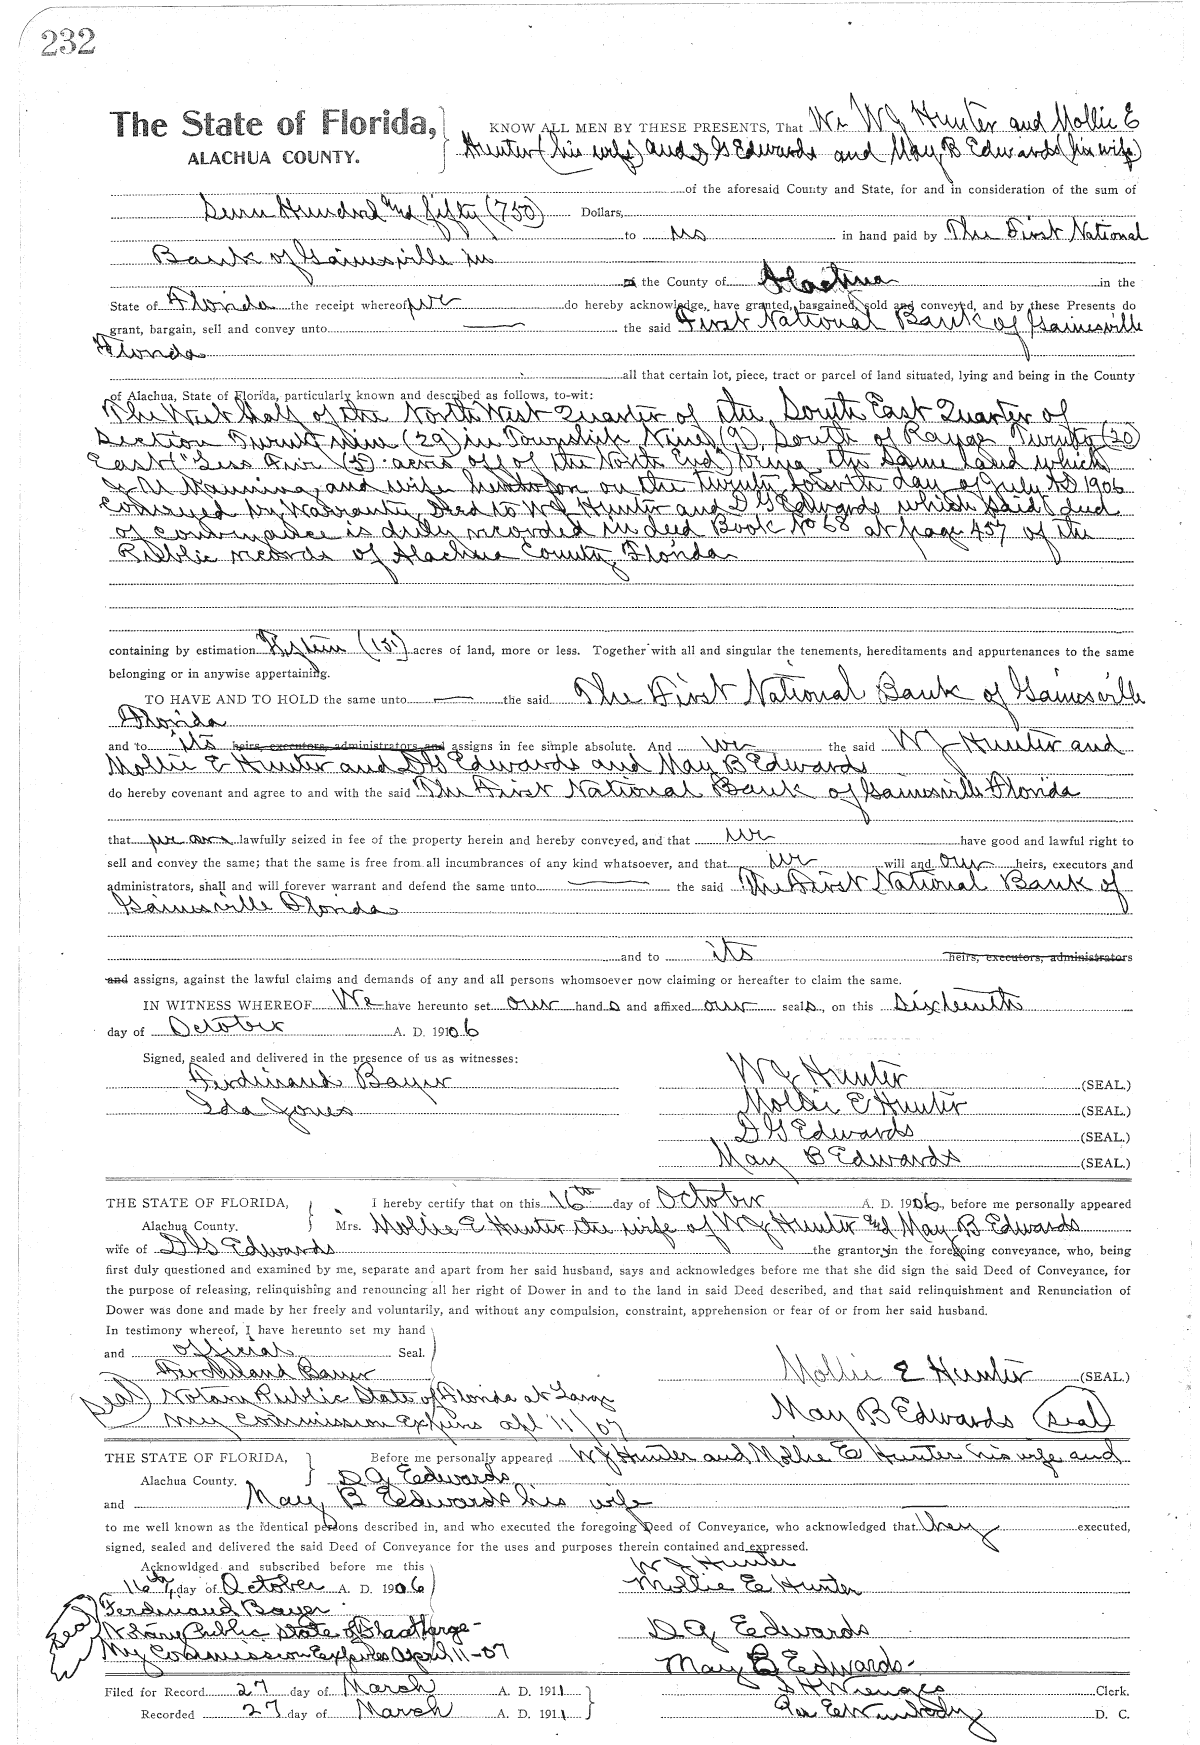 232
The State of Florida, KNOW ALL MEN BY THESE PRESENTS, That We W J Hunter and Mollie E
ALACHUA COUNTY. Hunter (his wife) and D G Edwards and May B Edwards (his wife)
of the aforesaid County and State, for and in consideration of the sum of
Seven Hundred and fifty (750) Dollars,
to us in hand paid by The First National
Bank of Gainesville in
the County of Alachua in the
State of Florida the receipt whereof we do hereby acknowledge, have granted, bargained, sold and conveyed, and by these Presents do
grant, bargain, sell and convey unto the said First National Bank of Gainesville
Florida
all that certain lot, piece, tract or parcel of land situated, lying and being in the County
of Alachua, State of Florida, particularly known and described as follows, to-wit:
The West half of the North West Quarter of the South East Quarter of
Section Twenty nine (29) in Township Nine (9) South of Range Twenty (20)
East ("Less Five (5) acres off of the North End") being the same land which
and wife heretofore on the twenty fourth day of July AD 1906
Conveyed by Warranty Deed to W J Hunter and D G Edwards which said deed
of conveyance is duly recorded in deed Book No 68 at page 457 of the
Public records of Alachua County Florida
containing by estimation Fifteen (15) acres of land, more or less. Together with all and singular the tenements, hereditaments and appurtenances to the same
belonging or in anywise appertaining.
TO HAVE AND TO HOLD the same unto the said The First National Bank of Gainesville
Florida
and to its heirs, executors, administrators and assigns in fee simple absolute. And we the said W J Hunter and
Mollie E Hunter and D G Edwards and May B Edwards
do hereby covenant and agree to and with the said The First National Bank of Gainesville Florida
that we are lawfully seized in fee of the property herein and hereby conveyed, and that we have good and lawful right to
sell and convey the same; that the same is free from all incumbrances of any kind whatsoever, and that we will and our heirs, executors and
administrators, shall and will forever warrant and defend the same unto the said The First National Bank of
Gainesville Florida
and to its heirs, executors, administrators
and assigns, against the lawful claims and demands of any and all persons whomsoever now claiming or hereafter to claim the same.
IN WITNESS WHEREOF We have hereunto set our hands and affixed our seals, on this sixteenth
day of October A. D. 1906
Signed, sealed and delivered in the presence of us as witnesses:
Ferdinand Bayer W J Hunter (SEAL.)
Ida Jones Mollie E Hunter (SEAL.)
D G Edwards (SEAL.)
May B Edwards (SEAL.)
THE STATE OF FLORIDA, I hereby certify that on this 16th day of October A. D. 1906, before me personally appeared
Alachua County. Mrs. Mollie E Hunter the wife of W J Hunter and May B Edwards
wife of D G Edwards the grantors in the foregoing conveyance, who, being
first duly questioned and examined by me, separate and apart from her said husband, says and acknowledges before me that she did sign the said Deed of Conveyance, for
the purpose of releasing, relinquishing and renouncing all her right of Dower in and to the land in said Deed described, and that said relinquishment and Renunciation of
Dower was done and made by her freely and voluntarily, and without any compulsion, constraint, apprehension or fear of or from her said husband.
In testimony whereof, I have hereunto set my hand
and official Seal.
Ferdinand Bayer Mollie E Hunter (SEAL)
(seal) Notary Public State of Florida at Large
My Commission Expires apl 11/07 May B Edwards (seal)
THE STATE OF FLORIDA, Before me personally appeared W J Hunter and Mollie E Hunter his wife and
Alachua County. D G Edwards
and May B Edwards his wife
to me well known as the identical persons described in, and who executed the foregoing Deed of Conveyance, who acknowledged that they executed,
signed, sealed and delivered the said Deed of Conveyance for the uses and purposes therein contained and expressed.
Acknowldged and subscribed before me this W J Hunter
16th day of October A. D. 1906 Mollie E Hunter
Ferdinand Bayer
(seal) Notary Public State of Fla at large- D G Edwards
My Commission Expires April 11-07 May B Edwards-
Filed for Record 27 day of March A. D. 1911 Clerk.
Recorded 27 day of March A. D. 1911 D. C.